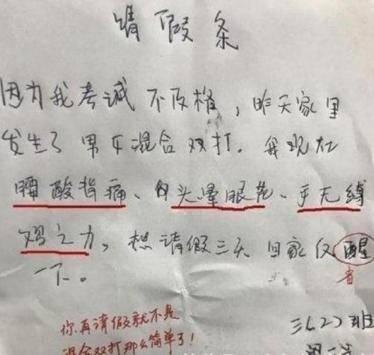 请假条
因为我考试不及格，昨天家里
发生了男女混合双打。我现在
腰酸背痛、白头晕眼花、手无缚
鸡之力，想请假三天回家反醒
一下。
省
你再请假就不是
混合双打那么简单了！
三(2)班